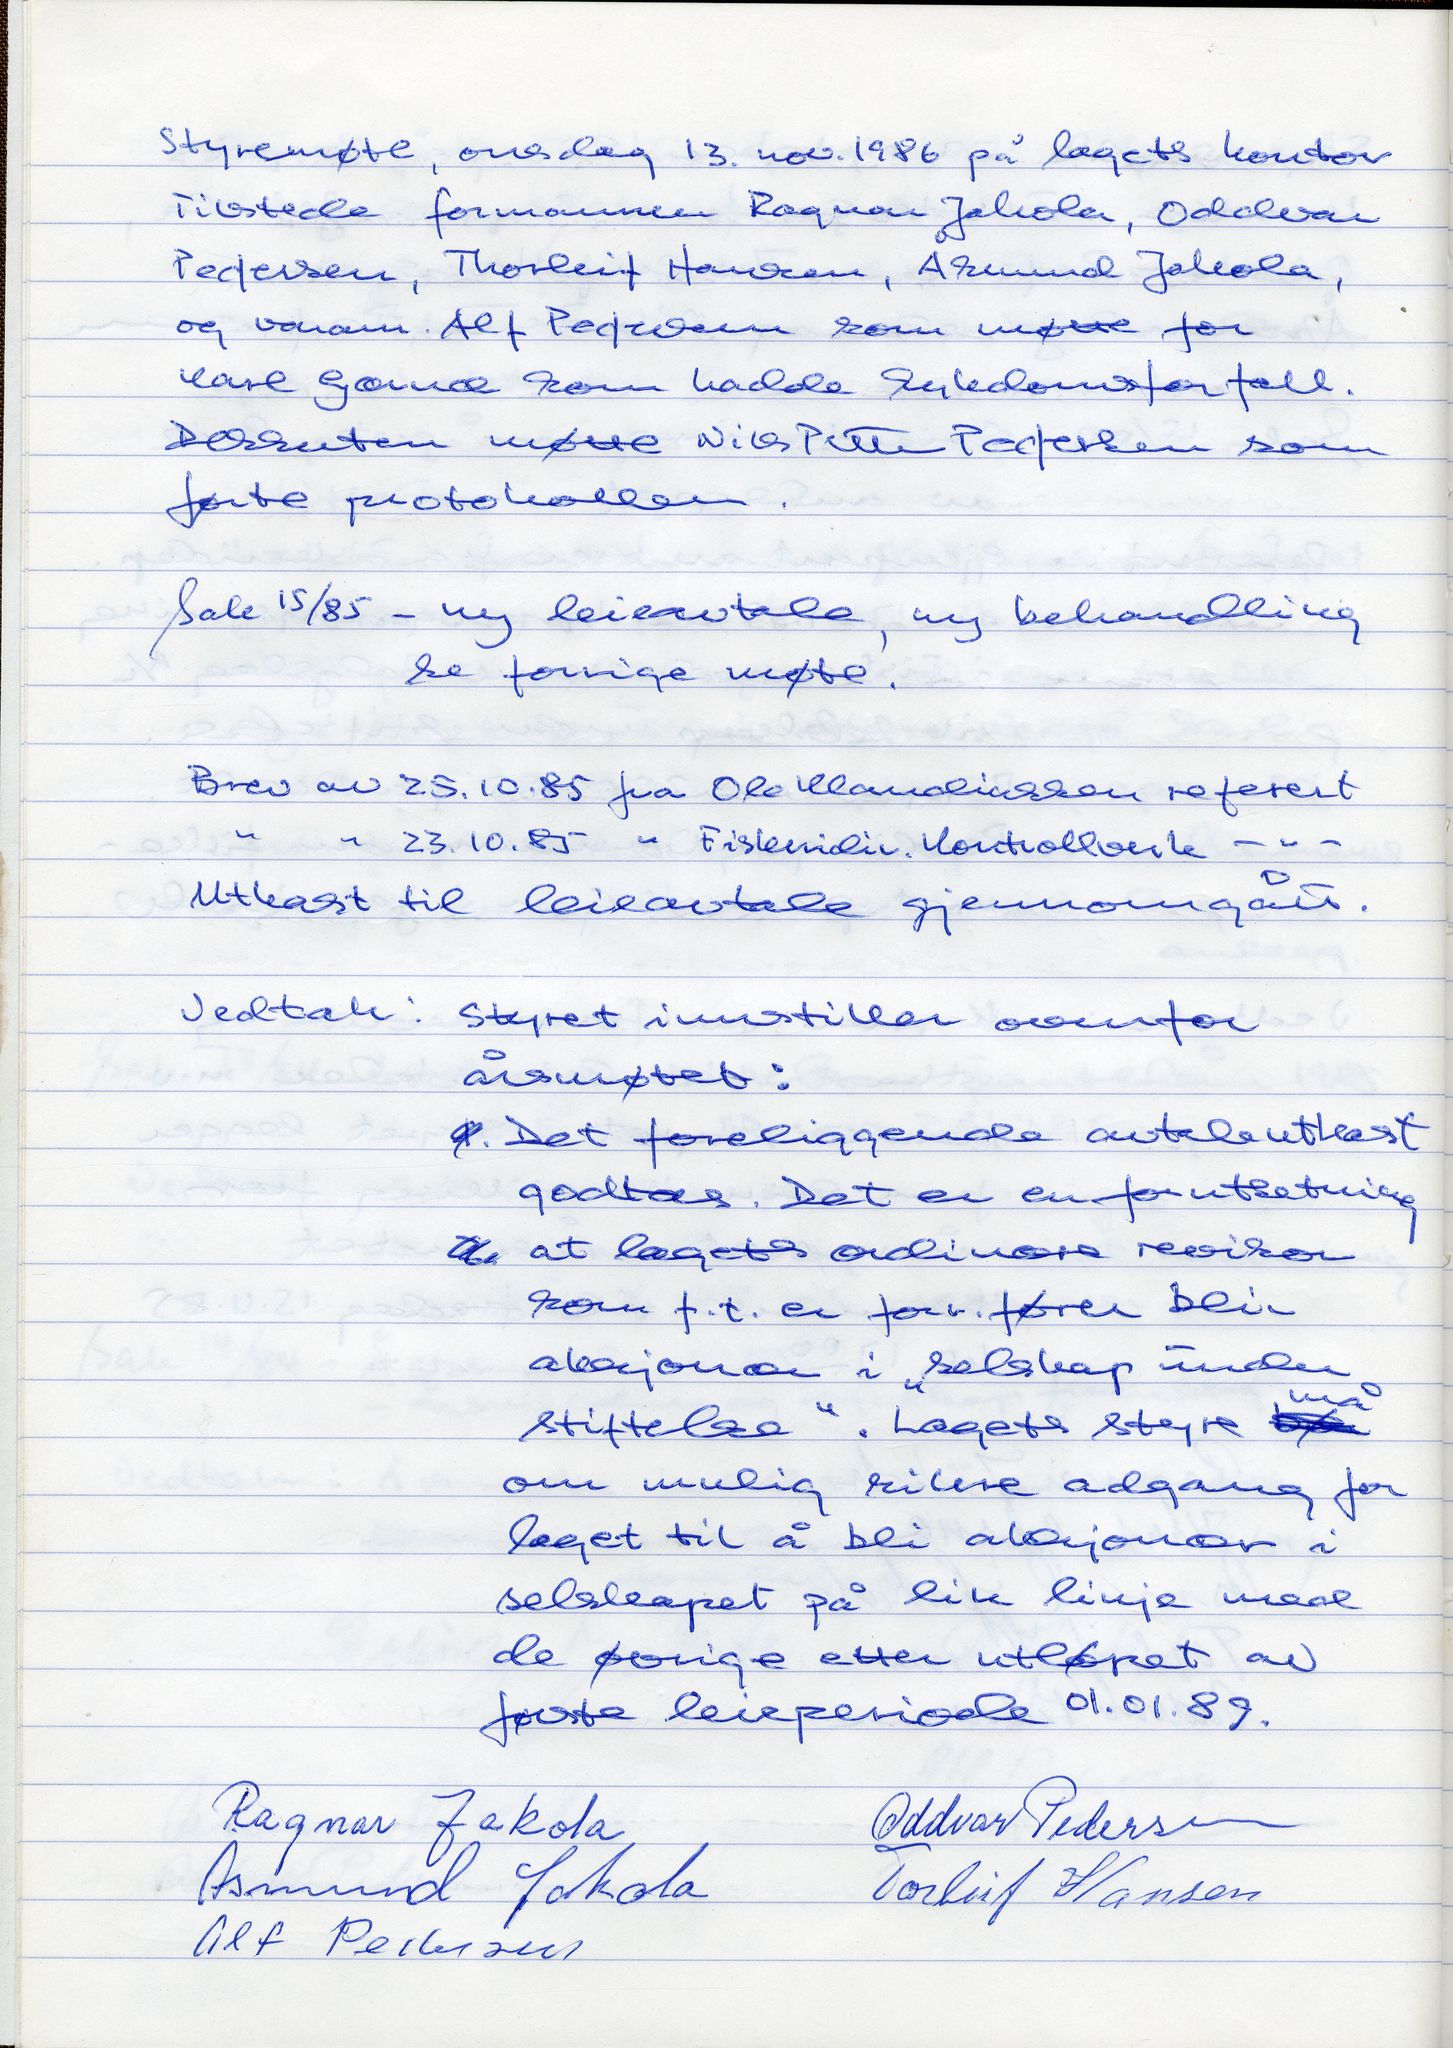 Styremøte, onsdag 13. nov. 1986 på lagets kontor
Tilstede formannen Ragnar Jakola, Oddvar
Pedersen, Thorleif Hansen, Åsmund Jakola,
og varam. Alf Pedersen som møtte for
Karl som hadde sykdomsforfall.
Dessuten møtte Nils Petter Pedersen som
førte protokollen.
Sak 15/85 - ny leieavtale, ny behandling
se forrige møte.
Brev av 25.10.85 fra Ola Klaudiussen referert
" " 23.10.85 " Fiskeridir. Kontrollverk - " -
Utkast til leieavtale gjennomgått.
Vedtak: Styret innstiller ovenfor
årsmøtet:
Det foreliggende avtaleutkast
godtas. Det er en forutsetning
at lagets ordinære revisor
som f.t. er forr.fører blir
aksjonær i "selskap under
stiftelse". Lagets styre må
om mulig sikre adgang for
laget til å bli aksjonær i
selskapet på lik linje med
de øvrige etter utløpet av
første leieperiode 01.01.89.
Ragnar Jakola Oddvar Pedersen
Asmund Jakola Torleif Hansen
Alf Pedersen